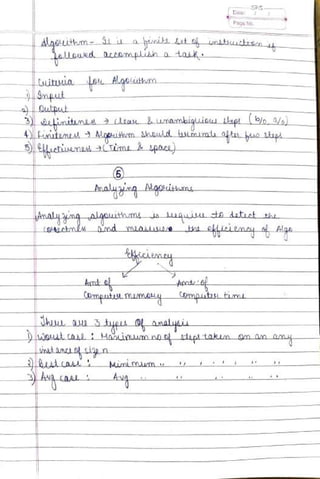 Date
Page No.
Algorithm - It is a finite set of instruction if
followed accomplish a task.
Criteria for Algorithm
1) Input
2) Output
3) Definiteness → clear & unambiguious steps
4) Finiteness → Algorithm should terminate after few steps
5) Effectiveness → (Time & space)
5
Analyzing Algorithms
Analyzing algorithms is require to detect the
correctness and measure the efficiency of Algo
Efficiency
Amt of Amt of
Computer memory Computer time
There are 3 types of analysis
1) Worst case : Maximum no of steps taken on an any
instance of size n
2) Best case : Minimum " " " " " "
3) Avg case : Avg " " " " "